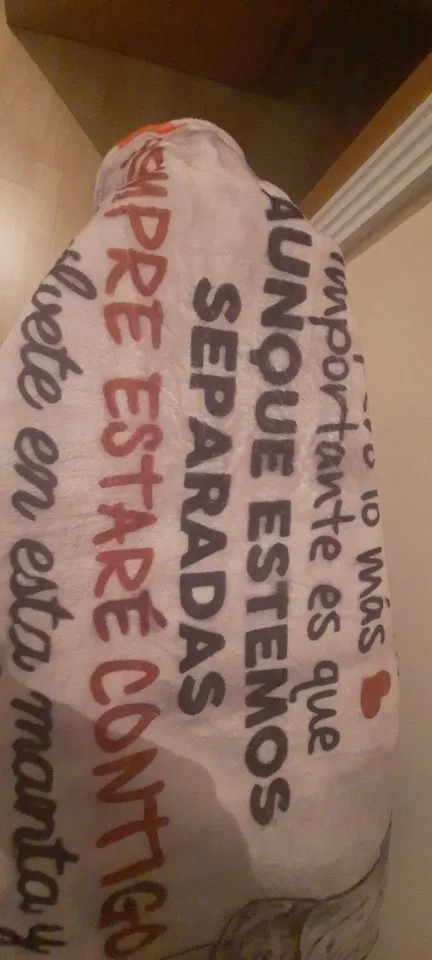 lo más
importante es que
AUNQUE ESTEMOS
SEPARADAS
SIEMPRE ESTARÉ CONTIGO
en esta manta y